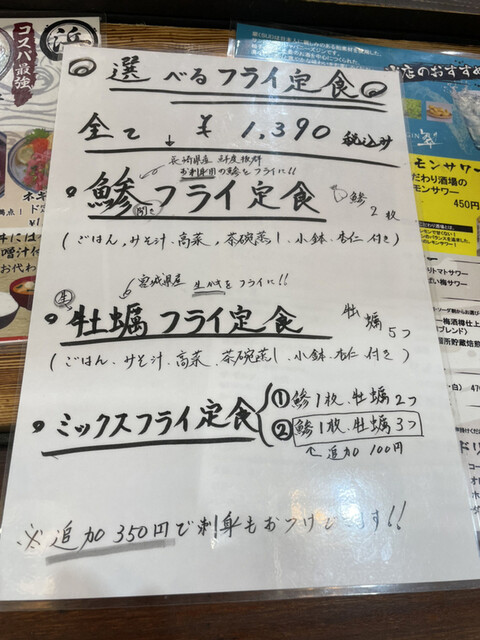 選べるフライ定食
全て ↓ ¥1,390 税込み
長崎県産 鮮度抜群
お刺身用の鯵をフライに!!
鯵フライ定食 鯵2枚
開き
(ごはん,みそ汁,高菜,茶碗蒸し,小鉢,杏仁付き)
宮城県産 生がきをフライに!!
生
牡蠣フライ定食 牡蠣5つ
(ごはん、みそ汁、高菜、茶碗蒸し、小鉢、杏仁付き)
ミックスフライ定食
① 鯵1枚、牡蠣2つ
② 鯵1枚、牡蠣3つ
↑追加100円
※追加350円で刺身もおつけできます!!
浜
コスパ最強
店のおすすめ
モンサワー
だわり酒場の
モンサワー
450円
トマトサワー
ぱい梅サワー